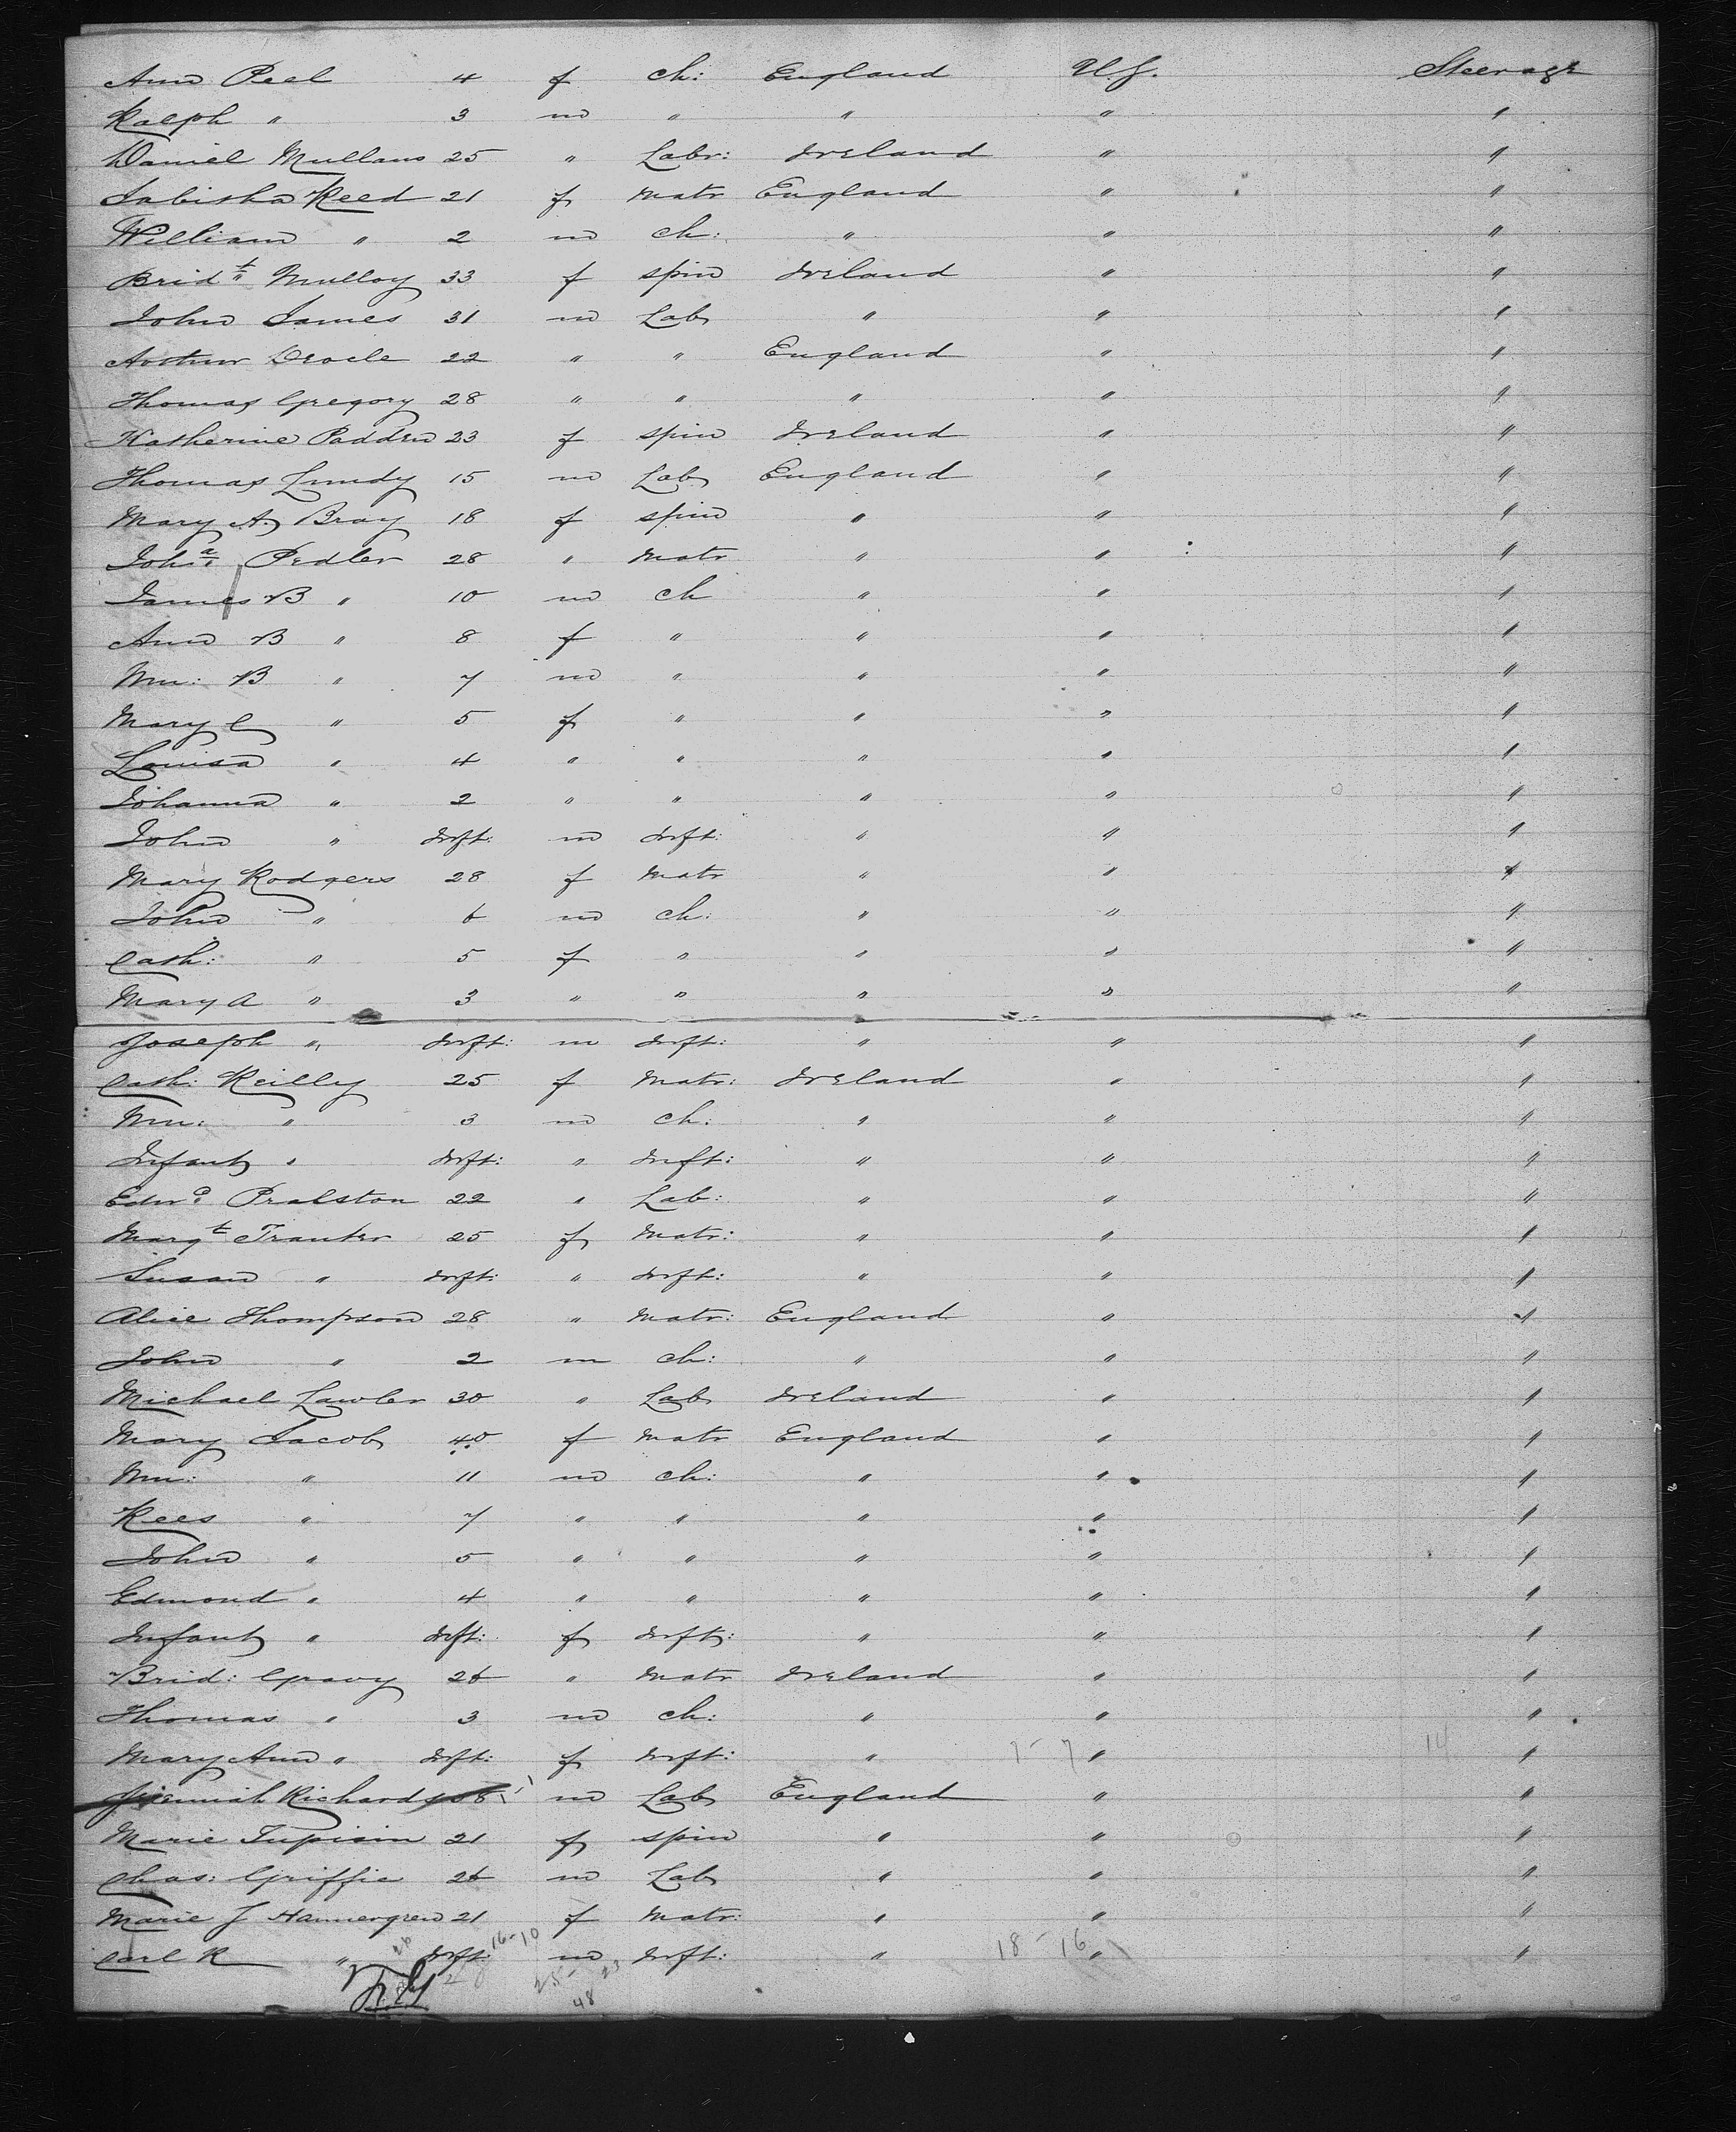 Ann Peel 4 f ch: England U.S. Steerage
Ralph " 3 m " " " "
Daniel Mullans 25 " Labr: Ireland " "
Tabitha Reed 21 f Matr England " "
William " 2 m ch: " " "
Bridt Mulloy 33 f spin Ireland " "
John James 31 m Lab " " "
Arthur 22 " " England " "
Thomas Gregory 28 " " " " "
Katherine Padden 23 f spin Ireland " "
Thomas Lundy 15 m Lab England " "
Mary A. Bray 18 f spin " " "
Joha Pedler 28 " Matr " " "
James B " 10 m ch " " "
Ann B " 8 f " " " "
Wm: B " 7 m " " " "
Mary C " 5 f " " " "
Louisa " 4 " " " " "
Johanna " 2 " " " " "
John " Inft: m Inft: " " "
Mary Rodgers 28 f Matr " " "
John " 6 m ch: " " "
Cath: " 5 f " " " "
Mary A " 3 " " " " "
Joseph " Inft: m Inft: " " "
Cath: Reilly 25 f Matr: Ireland " "
Wm: " 3 m ch: " " "
Infant " Inft: " Inft: " " "
Edwd Pralston 22 " Lab: " " "
Margt Tranter 25 f Matr: " " "
Susan " Inft: " Inft: " " "
Alice Thompson 28 " Matr: England " "
John " 2 m ch: " " "
Michael Lawler 30 " Lab Ireland " "
Mary Jacob 40 f Matr England " "
Wm: " 11 m ch: " " "
Rees " 7 " " " " "
John " 5 " " " " "
Edmond " 4 " " " " "
Infant " Inft: f Inft: " " "
Brid: Gravy 26 " Matr Ireland " "
Thomas " 3 m ch: " " "
Mary Ann " Inft: f Inft: " 7-7 " 14 "
Jeremiah Richards m Lab England " "
Marie 21 f spin " " "
Chas: Griffie 26 m Lab " " "
Marie J Hamergren 21 f Matr: " " "
Carl R " Inft: 16-10 m Inft: " 18-16 " "
48